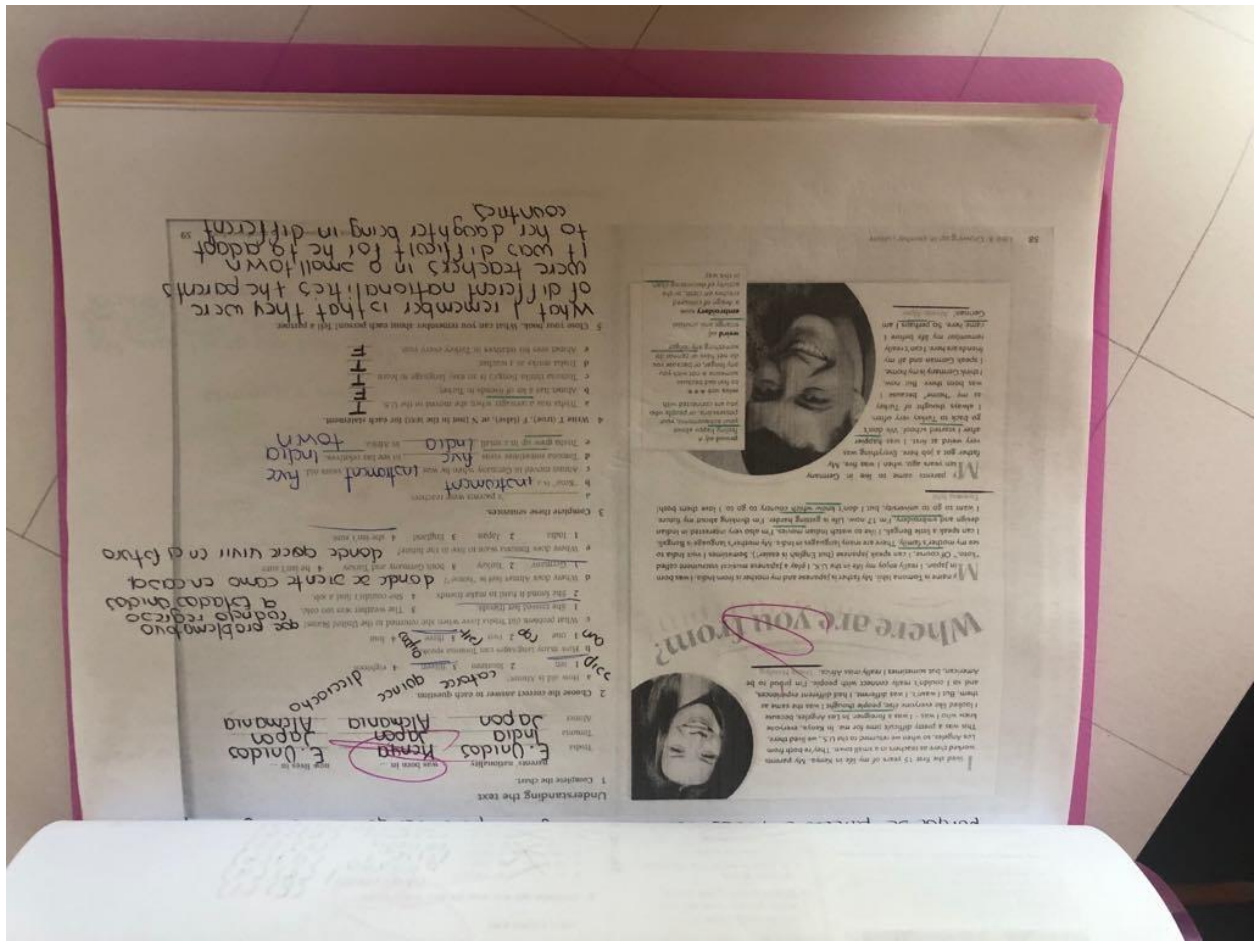 I lived the first 15 years of my life in Kenya. My parents
worked there as teachers in a small town. They're both from
Los Angeles, so when we returned to the U.S., we lived there.
This was a pretty difficult time for me. In Kenya, everyone
knew who I was - I was a foreigner. In Los Angeles, because
I looked like everyone else, people thought I was the same as
them. But I wasn't. I was different. I had different experiences,
and so I couldn't really connect with people. I'm proud to be
American, but sometimes I really miss Africa.
Where are you from?
My name is Tomona
in Japan. I really enjoy my life in the U.S. I play a Japanese musical instrument called
"koto." Of course, I can speak Japanese (but English is easier!). Sometimes I visit India to
see my mother's family. There are many languages in India. My mother's language is Bengali.
I can speak a little Bengali. I like to watch Indian movies. I'm also very interested in Indian
design and embroidery. I'm 17 now. Life is getting harder. I'm thinking about my future.
I want to go to university, but I don't know which country to go to. I love them both!
My parents came to live in Germany
ten years ago, when I was five. My
father got a job here. Everything was
very weird at first. I was happier
after I started school. We don't
go back to Turkey very often.
I always thought of Turkey
as my "home" because I
was born there. But now,
I think Germany is my home.
I speak German and all my
friends are here. I can't really
remember my life before I
came here. So perhaps I am
German.
proud adj
feeling happy about
your achievements, your
possessions, or people who
you are connected with
weird adj
strange and unusual
embroidery noun
a design of colored
58
Understanding the text
1 Complete the chart.
parents' nationality was born in ... now lives in ...
Trisha E. Unidos Kenya E. Unidos
Tomona India Japon Japon
Ahmet Japon Alemania Alemania
2 Choose the correct answer to each question.
catorce quince dieciocho
a How old is Ahmet?
1 ten 2 fourteen 3 fifteen 4 eighteen
b How many languages can Tomona speak?
1 one 2 two 3 three 4 four
c What problem did Trisha have when she returned to the United States?
que problema tuvo
cuando regreso
a Estados Unidos
1 She missed her friends. 3 The weather was too cold.
2 She found it hard to make friends. 4 She couldn't find a job.
d Where does Ahmet feel is "home"? donde se siente como en casa
1 Germany 2 Turkey 3 both Germany and Turkey 4 he isn't sure
e Where does Tomona want to live in the future? donde quiere vivir en el futuro
1 India 2 Japan 3 England 4 she isn't sure
3 Complete these sentences.
a 's parents were teachers.
b "Koto" is a instrument
c Ahmet moved to Germany when he was instrument years old. five
d Tomona sometimes visits five to see her relatives. India
e Trisha grew up in a small india in Africa. town
4 Write T (true), F (false), or N (not in the text) for each statement.
a Trisha was a teenager when she moved to the U.S.
b Ahmet has a lot of friends in Turkey.
d Trisha works as a teacher.
e Ahmet sees his relatives in Turkey every year.
5 Close your book. What can you remember about each person? Tell a partner.
What I remember is that they were
of different nationalities the parents
were teachers in a small town
It was difficult for he to adapt
to her daughter being in different
countries
59